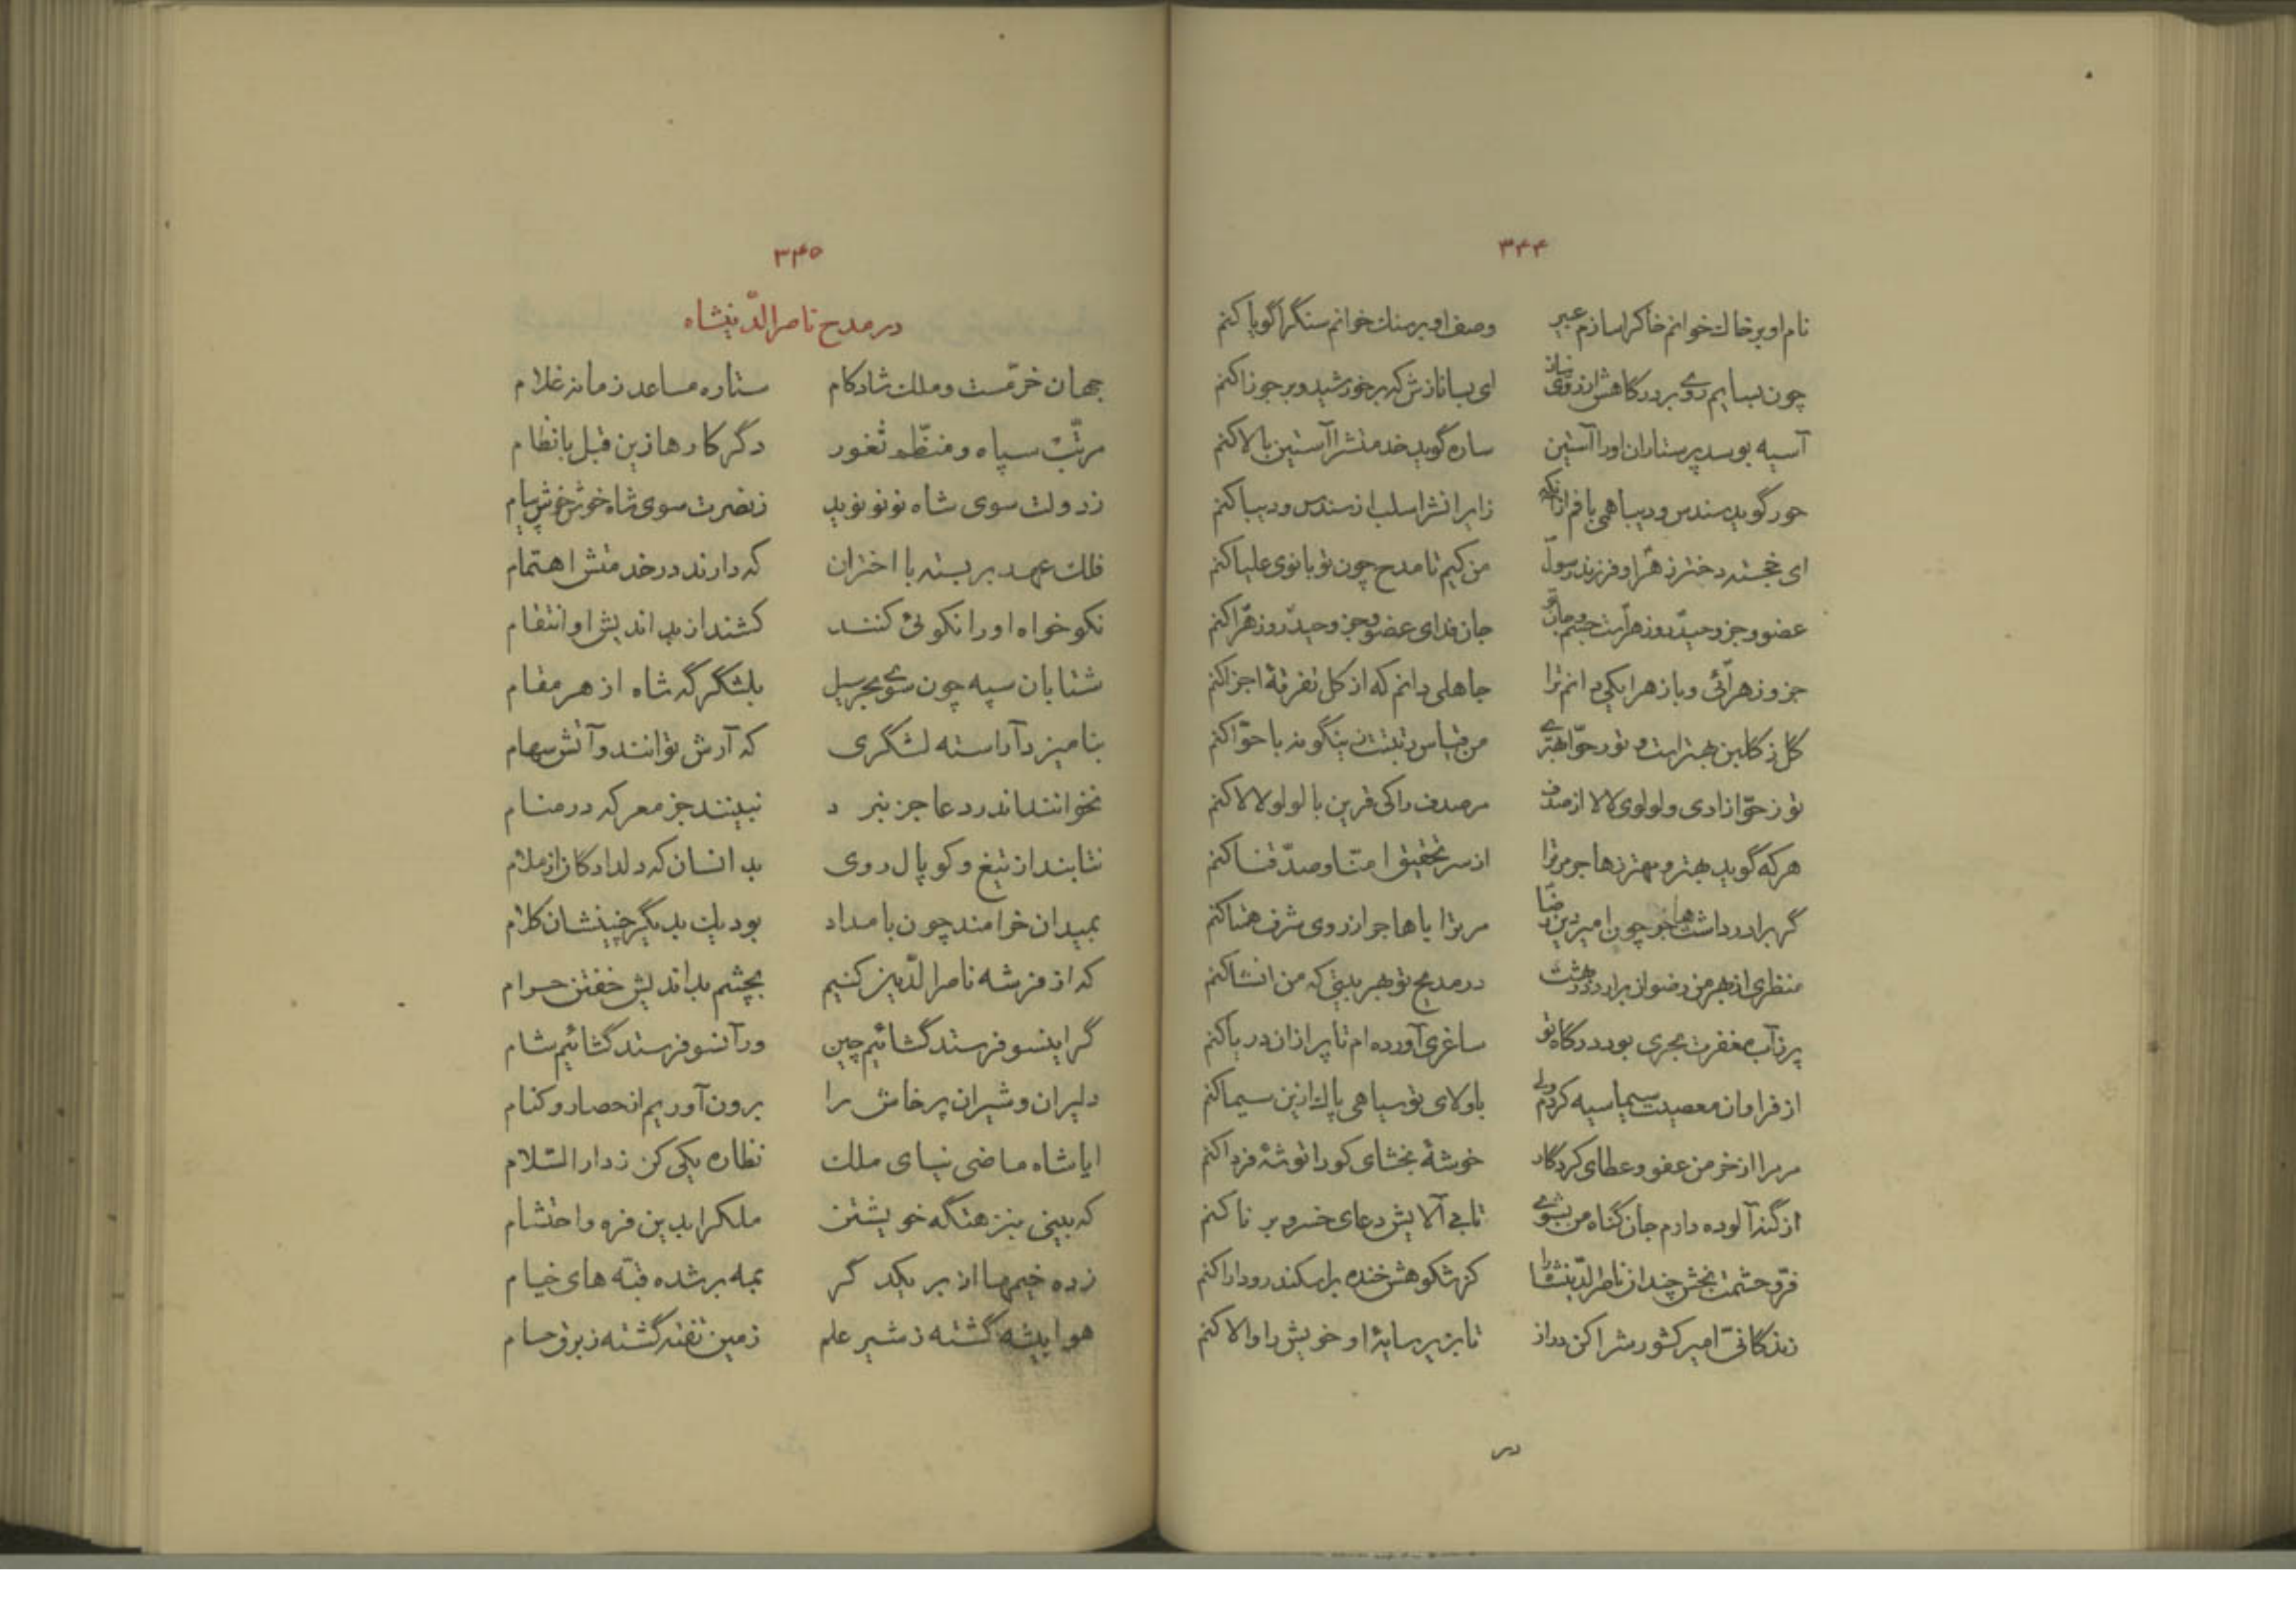 ۳۴۴
نام او بر خاك خوانم خاكرا سازم عبیر وصف او بر سنك خوانم سنگرا گویا كنم
چون بسایم روی بر درگاهش از روی نیاز ای بسا نازش كه بر خورشید و بر جوزا كنم
آسیه بوسد پرستاران او را آستین ساره گوید خدمتشرا آستین بالا كنم
حور گوید سندس و دیبا همی بافم ازانكه زایرانشرا سلب از سندس و دیبا كنم
ای خجسته دختر زهرا و فرزند رسول من كیم تا مدح چون تو بانوی علیا كنم
عضو و جزو حیدر و زهراست جسم و جان تو جان فدای عضو و جزو حیدر و زهرا كنم
جزو زهرائی و با زهرا یكی دانم ترا جاهلی دانم كه از كل تفرقهٔ اجزا كنم
گل ز گلبن بهتر است و تو ز حوّا بهتری من قیاس رتبتت زینگونه با حوّا كنم
تو ز حوّا زادی و لولوی لالا از صدف مر صدف را كی قرین با لولو لالا كنم
هر كه گوید بهتر و مهتر ز هاجر مر ترا از سر تحقیق امنّا و صدّقنا كنم
گر برادر داشت هاجر چون امیر دین رضا مر ترا با هاجر از روی شرف همتا كنم
منظری از بهر من رضوان برارد در بهشت در مدیح تو هر بیتی كه من انشا كنم
پر ز آب مغفرت بحری بود درگاه تو ساغری آورده ام تا پر ازان دریا كنم
از فراوان معصیت سیما سیه كردم ولی با ولای تو سیاهی پاك ازین سیما كنم
مر مرا از خرمن عفو و عطای كردگار خوشهٔ بخشای كورا توشهٔ فردا كنم
از گنه آلوده دارم جان گناه من بشوی تا بی آلایش دعای خسرو برنا كنم
فرّ و حشمت بخش چندان ناصر الدّینشاه را كز شكوهش خنده بر اسكندر و دارا كنم
زندگانیّ امیر كشورشرا كن دراز تا بزیر سایهٔ او خویش را والا كنم
در
۳۴۵
در مدح ناصر الدّینشاه
جهان خرّمست و ملك شادكام ستاره مساعد زمانه غلام
مرتّب سپاه و منظّم ثغور دگر كارها زین قبل با نظام
ز دولت سوی شاه نو نو نوید ز نصرت سوی شاه خوش خوش پیام
فلك عهد بر بسته با اختران كه دارند در خدمتش اهتمام
نكو خواه او را نكوئی كنند كشند از بد اندیش او انتقام
شتابان سپه چون سوی بحر سیل بلشگر گه شاه از هر مقام
بنامیزد آراسته لشگری كه آرش توانند و آتش سهام
نخوانند اندر دعا جز نبرد نبینند جز معركه در منام
نتابند از تیغ و كوپال روی بد انسان كه دلدادگان از ملام
بمیدان خرامند چون بامداد بود یك بدیگر چنینشان كلام
كه از فرّ شه ناصر الدّین كنیم بچشم بد اندیش خفتن حرام
گر اینسو فرستد گشائیم چین ور آنسو فرستد گشائیم شام
دلیران و شیران پرخاش را برون آوریم از حصار و كنام
ایا شاه ماضی نیای ملك نظاره یكی كن ز دار السّلام
كه بینی بنزهتگه خویشتن ملكرا بدین فرّه و احتشام
زده خیمها از بر یكدگر بمه بر شده قبّه های خیام
هوا بیشه گشته ز شیر علم زمین تفته گشته ز برق حسام